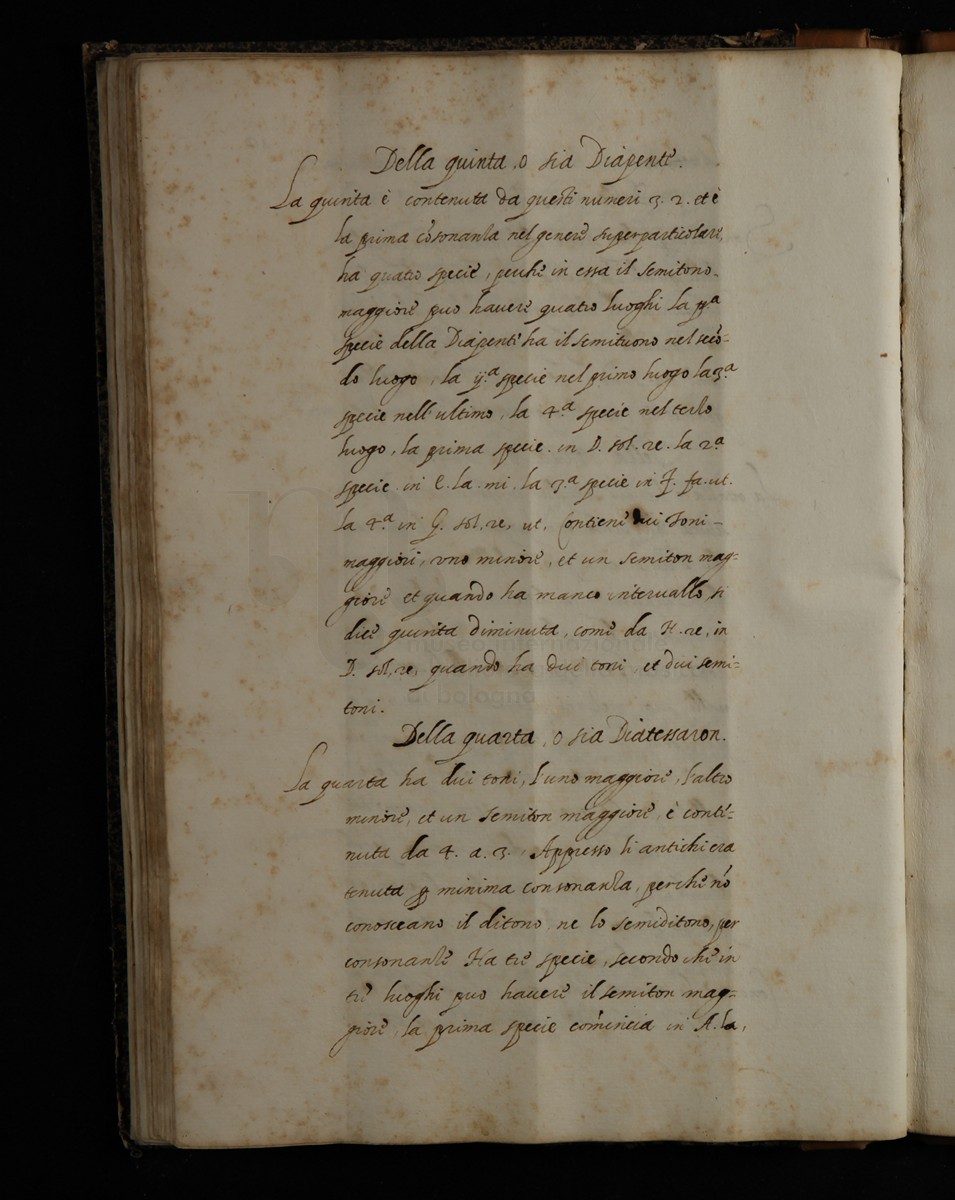 Della quinta, o sia Diapente.
La quinta è contenuta da questi numeri 3. 2. et è
la prima cõsonanza nel genere superparticolare,
ha quatro specie, perche in essa il semitono
maggiore puo havere quatro luoghi la pª
specie della Diapente ha il semituono nel secõ=
do luogo, la ijª specie nel primo luogo la 3ª
specie nell'ultimo, la 4ª specie nel terzo
luogo, la prima specie. in D. sol. re. la 2ª
specie in E. la. mi. la 3ª specie in F. fa. ut.
la 4ª in G. sol, re, ut. Contiene dui Toni
maggiori, uno minore, et un semiton mag=
giore et quando ha manco intervallo, si
dice quinta diminuta, come da ♮. re, in
D. sol, re, quando ha dui toni, et dui semi=
toni.
Della quarta, o sia Diatessaron.
La quarta ha dui toni, l'uno maggiore, l'altro
minore, et un semiton maggiore, è conte=
nuta da 4. a. 3. Appresso li antichi era
tenuta ꝑ minima consonanza, perche nõ
conosceano il ditono, ne lo semiditono, per
consonanze Ha tre specie, secondo che in
tre luoghi puo havere il semiton mag=
giore, la prima specie comincia in A. la,